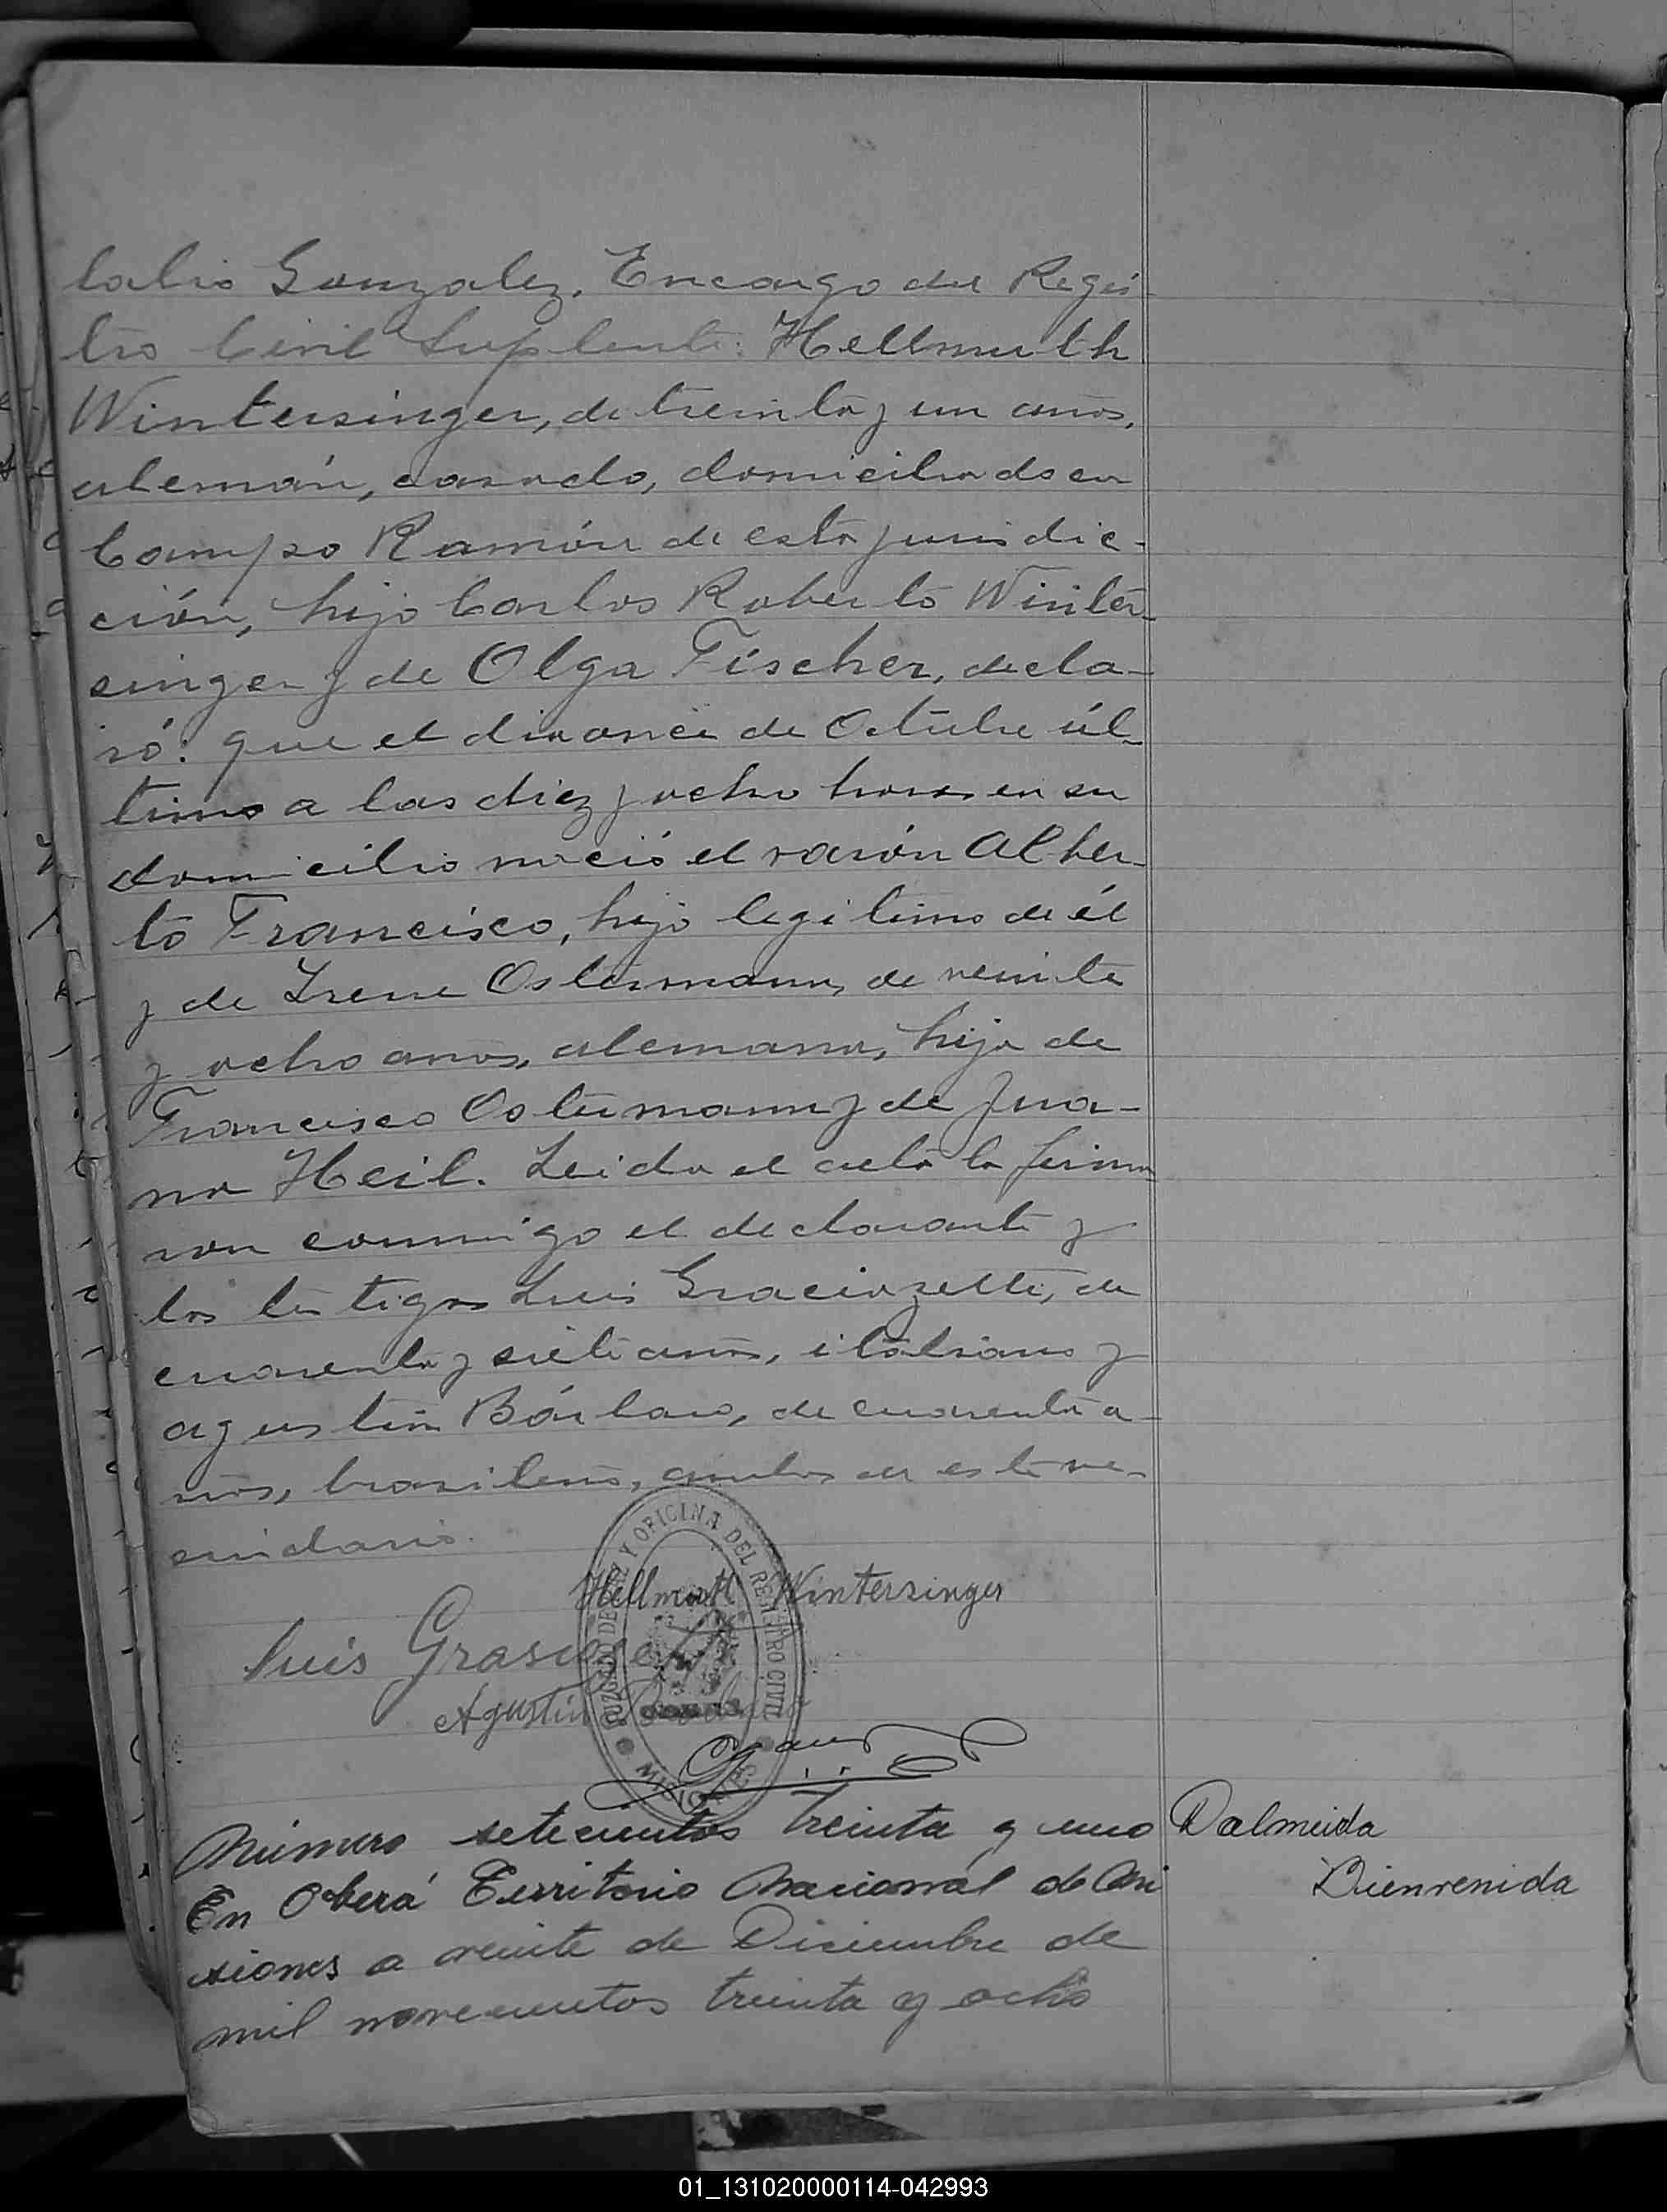 talio Gonzalez, Encargo del Regis
tro Civil Suplente: Hellmuth
Wintersinger, de treinta y un años,
alemán, casado, domiciliado en
Campo Ramón de esta jurisdic-
ción, hijo Carlos Roberto Winter-
singer y de Olga Fischer, decla-
ró: que el dia once de Octubre úl-
timo a las diez y ocho horas en su
domicilio nació el varón Alber-
to Francisco, hijo legitimo de él
y de Irene Ostermann, de veinte
y ocho anos, alemana, hija de
Francisco Ostermann y de Jua-
na Heil. Leida el acta la firma
ron conmigo el declarante y
los testigos Luis Graciozetti, de
cuarenta y siete años, italiano y
Agustin Bárbaro, de cuarenta a-
ños, brasileño, ambos de este ve-
cindario.
JUZGADO DE PAZ Y OFICINA DEL REGISTRO CIVIL
MISIONES
Hellmuth Wintersinger
Luis
Agustin
Número setecientos treinta y uno
En Oberá Territorio Nacional de Mi
siones a veinte de Diciembre de
mil novecientos treinta y ocho
Dalmeida
Bienvenida
01_131020000114-042993